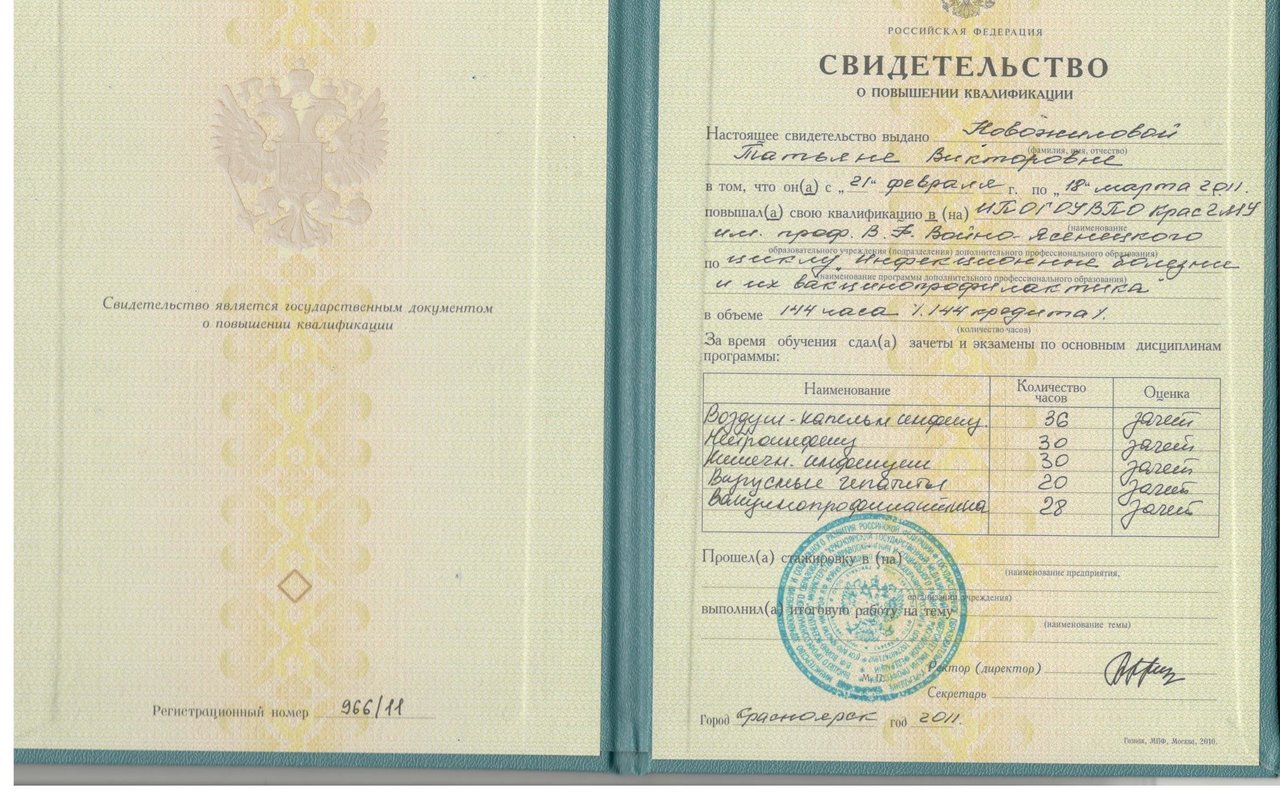 Свидетельство является государственным документом
о повышении квалификации
Регистрационный номер 966/11
РОССИЙСКАЯ ФЕДЕРАЦИЯ
СВИДЕТЕЛЬСТВО
О ПОВЫШЕНИИ КВАЛИФИКАЦИИ
Настоящее свидетельство выдано Новожиловой
(фамилия, имя, отчество)
Татьяне Викторовне
в том, что он(а) с „21“ февраля г. по „18“ марта 2011.
повышал(а) свою квалификацию в (на) ИПО ГОУ ВПО КрасГМУ
(наименование
им. проф. В. Ф. Войно-Ясенецкого
образовательного учреждения (подразделения) дополнительного профессионального образования)
по циклу „Инфекционные болезни
(наименование программы дополнительного профессионального образования)
и их вакцинопрофилактика“
в объеме 144 часа /144 кредита/.
(количество часов)
За время обучения сдал(а) зачеты и экзамены по основным дисциплинам
программы:
Наименование Количество часов Оценка
Воздуш-капельн инфекц. 36 зачет
Нейроинфекц 30 зачет
Кишечн. инфекции 30 зачет
Вирусные гепатиты 20 зачет
Вакцинопрофилактика 28 зачет
Прошел(а) стажировку в (на)
(наименование предприятия,
организации, учреждения)
выполнил(а) итоговую работу на тему
(наименование темы)
М.П.
Ректор (директор)
Секретарь
Город Красноярск год 2011.
Гознак, МПФ, Москва, 2010.